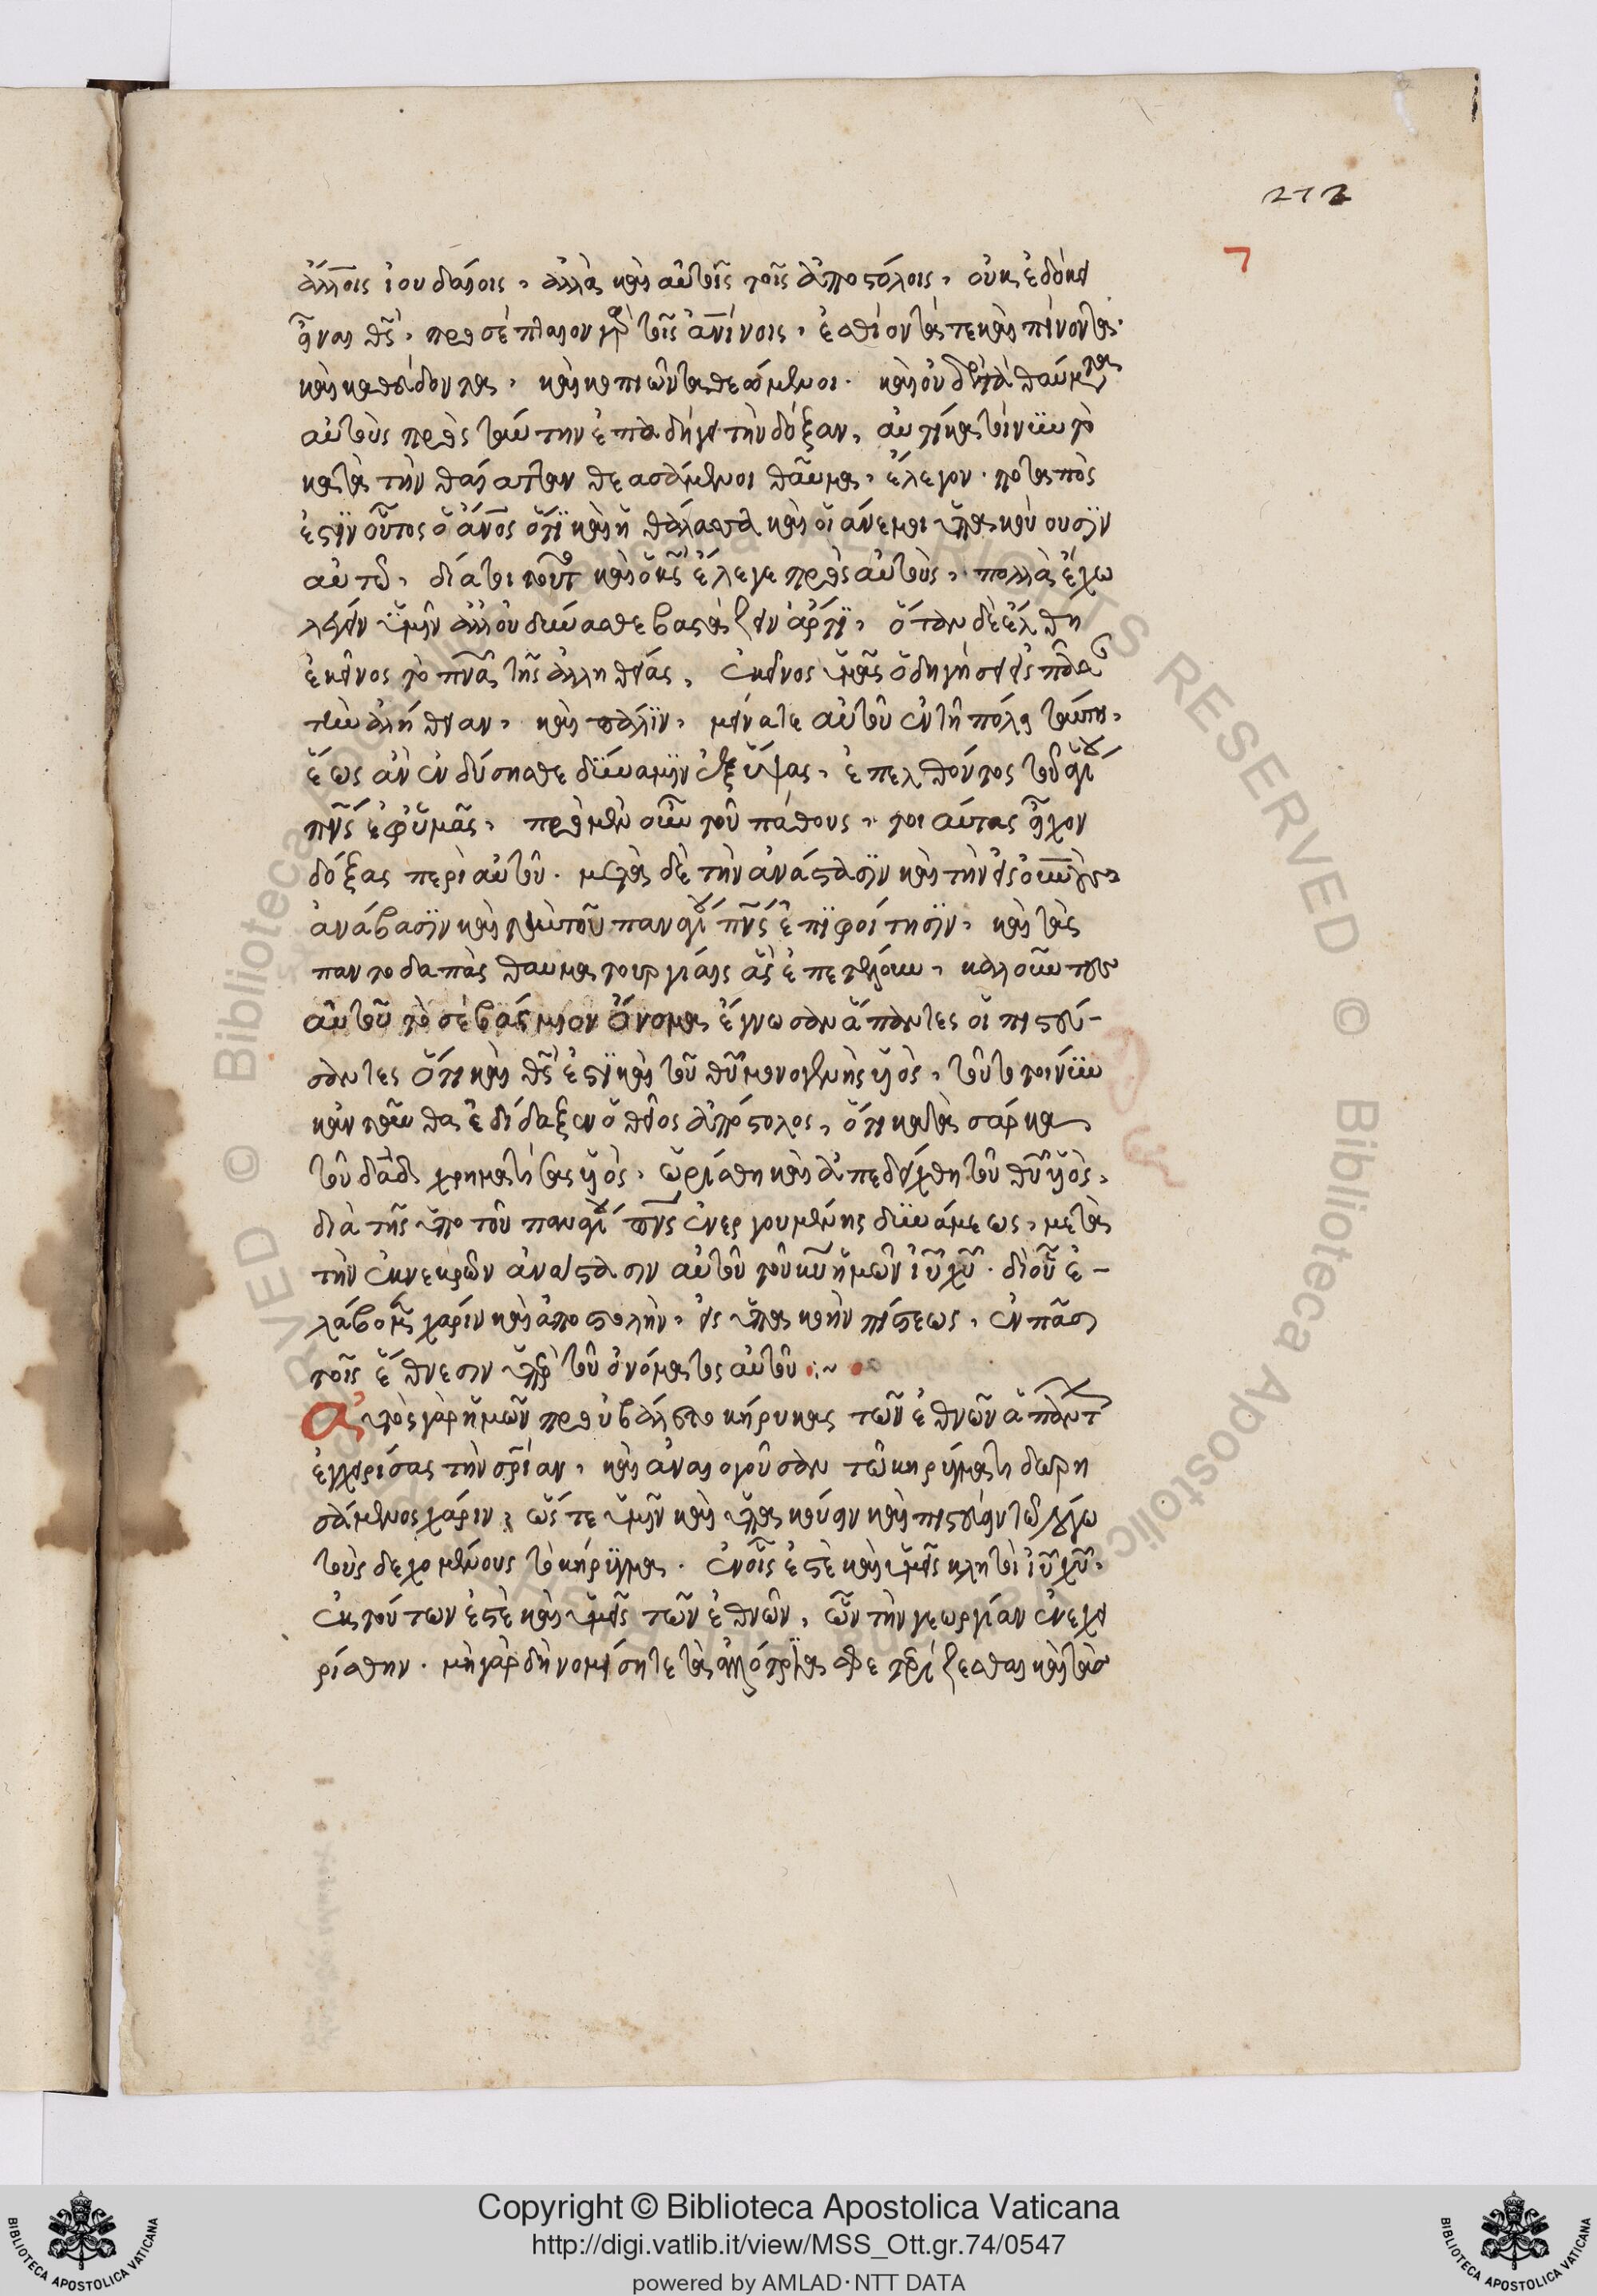 272
ἄλλοις ἰουδαίοις, ἀλλὰ καὶ αὐτοῖς τοῖς ἀποστόλοις, οὐκ ἐδόκει
εἶναι θς· προσέπταιον γὰρ τοῖς ἀνίνοις, ἐσθίοντά τε καὶ πίνοντα·
καὶ καθεύδοντα, καὶ κοπιῶντα θεώμενοι. καὶ οὐδὲ τὰ θαύματα
αὐτοὺς πρὸς ταύτην ἐποδήγει τὴν δόξαν, αὐτίκα τοίνυν τὸ
κατὰ τὴν θάλατταν θεασάμενοι θαῦμα, ἔλεγον· ποταπός
ἐστιν οὗτος ὁ ἄνος ὅτι καὶ ἡ θάλασσα καὶ οἱ ἄνεμοι ὑπακούουσιν
αὐτῶ, διάτοι τοῦτο καὶ ὁ κς ἔλεγε πρὸς αὐτούς· πολλὰ ἔχω
λέγειν ὑμῖν ἀλλ οὐ δύνασθε βαστάζειν ἄρτι, ὅταν δὲ ἔλθη
ἐκεῖνος τὸ πνα τῆς ἀληθείας, ἐκεῖνος ὑμᾶς ὁδηγήσει εἰς πᾶσαν
τὴν ἀλήθειαν, καὶ πάλιν· μείνατε αὐτοῦ ἐν τῆ πόλει ταύτη,
ἕως ἂν ἐνδύσησθε δύναμιν ἐξ ὕψους, ἐπελθόντος τοῦ ἁγίου
πνς ἐφ ὑμᾶς, πρὸ μὲν οὖν τοῦ πάθους, τοιαύτας εἶχον
δόξας περὶ αὐτοῦ. μετὰ δὲ τὴν ἀνάστασιν καὶ τὴν εἰς οὐνοὺς
ἀνάβασιν καὶ τὴν τοῦ παναγίου πνς ἐπιφοίτησιν, καὶ τὰς
παντοδαπὰς θαυματουργίας ἃς ἐπετέλουν, καλοῦντες
αὐτοῦ τὸ σεβάσμιον ὄνομα ἔγνωσαν ἅπαντες οἱ πιστεύ-
σαντες ὅτι καὶ θς ἐστὶ καὶ τοῦ θυ μονογενὴς υἱός, τοῦτο τοίνυν
κἀνταῦθα ἐδίδαξεν ὁ θεῖος ἀπόστολος, ὅτι κατὰ σάρκα
τοῦ δαδ χρηματίσας υἱός, ὡρίσθη καὶ ἀπεδείχθη τοῦ θυ υἱός,
διὰ τῆς ὑπὸ τοῦ παναγίου πνς ἐνεργουμένης δυνάμεως, μετὰ
τὴν ἐκ νεκρῶν ἀνάστασιν αὐτοῦ τοῦ κυ ἡμῶν ιυ χυ. δι οὗ ἐ-
λάβομεν χάριν καὶ ἀποστολήν, εἰς ὑπακοὴν πίστεως, ἐν πᾶσι
τοῖς ἔθνεσιν ὑπὲρ τοῦ ὀνόματος αὐτοῦ :~
Αὐτὸς γὰρ ἡμῶν προὐβάλετο κήρυκας τῶν ἐθνῶν ἁπάντων
ἐγχειρίσας τὴν σρίαν, καὶ ἀναλογοῦσαν τῶ κηρύγματι δωρη
σάμενος χάριν, ὥστε ὑμῖν καὶ ὑπακούειν καὶ πιστεύειν τῶ λόγω
τοὺς δεχομένους τὸ κήρυγμα. ἐν οἷς ἐστὲ καὶ ὑμεῖς κλητοὶ ιυ χυ,
ἐκ τούτων ἐστὲ καὶ ὑμεῖς τῶν ἐθνῶν, ὧν τὴν γεωργίαν ἐνεχει
ρίσθην. μὴ γὰρ δὴ νομίσητέ με τὰ ἀλλότρια σφετερίζεσθαι καὶ τὰς
Copyright © Biblioteca Apostolica Vaticana
http://digi.vatlib.it/view/MSS_Ott.gr.74/0547
powered by AMLAD·NTT DATA